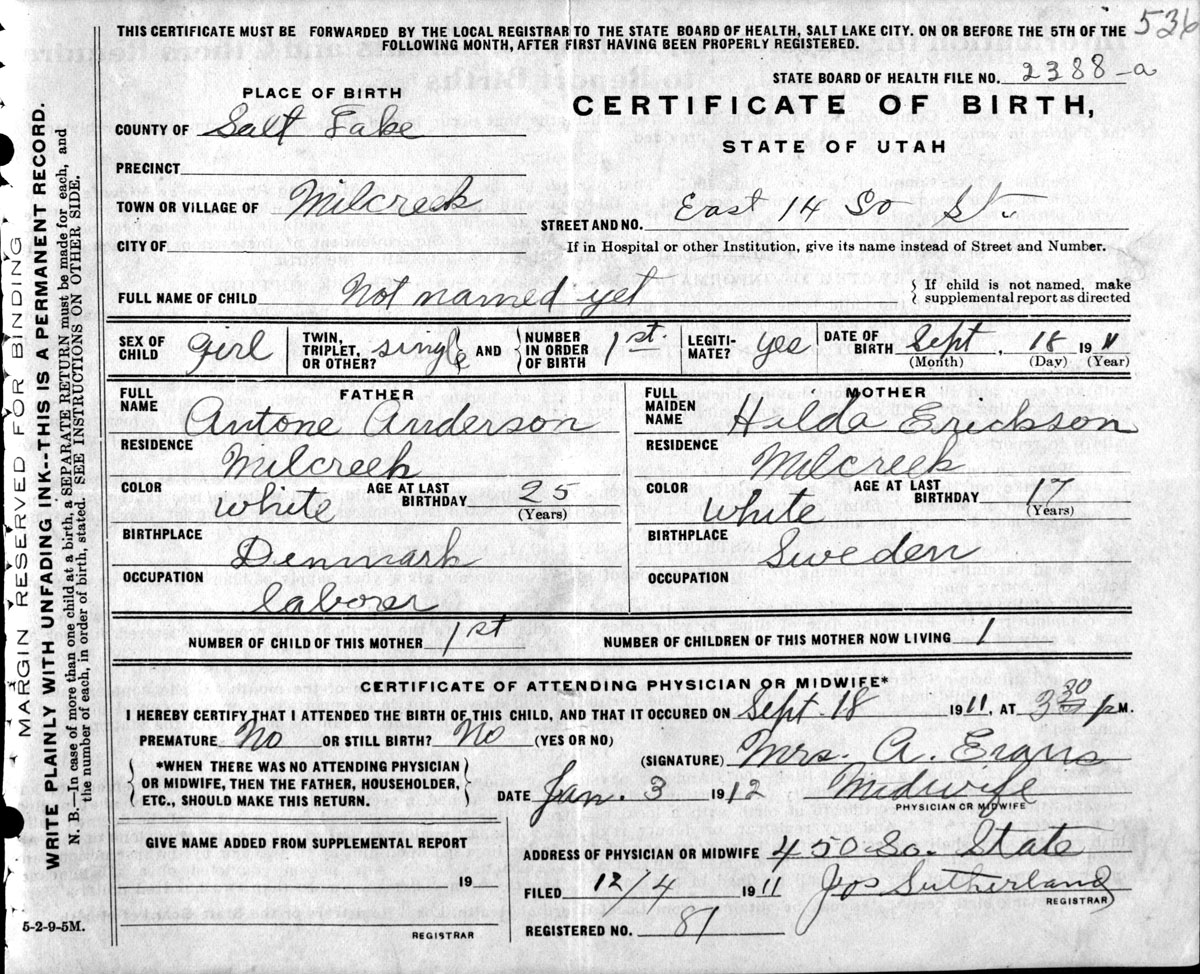 536
THIS CERTIFICATE MUST BE FORWARDED BY THE LOCAL REGISTRAR TO THE STATE BOARD OF HEALTH, SALT LAKE CITY. ON OR BEFORE THE 5TH OF THE
FOLLOWING MONTH, AFTER FIRST HAVING BEEN PROPERLY REGISTERED.
STATE BOARD OF HEALTH FILE NO. 2388-a
PLACE OF BIRTH
CERTIFICATE OF BIRTH,
STATE OF UTAH
COUNTY OF Salt Lake
PRECINCT
TOWN OR VILLAGE OF Milcreek
STREET AND NO. East 14 So St.
CITY OF
If in Hospital or other Institution, give its name instead of Street and Number.
FULL NAME OF CHILD Not named yet
If child is not named, make
supplemental report as directed
SEX OF CHILD girl
TWIN, TRIPLET, OR OTHER? single AND
NUMBER IN ORDER OF BIRTH 1st.
LEGITI-MATE? yes
DATE OF BIRTH Sept, 18 1911
(Month) (Day) (Year)
FATHER
FULL NAME Antone Anderson
RESIDENCE Milcreek
COLOR White AGE AT LAST BIRTHDAY 25
(Years)
BIRTHPLACE Denmark
OCCUPATION laborer
MOTHER
FULL MAIDEN NAME Hilda Erickson
RESIDENCE Milcreek
COLOR White AGE AT LAST BIRTHDAY 17
(Years)
BIRTHPLACE Sweden
OCCUPATION
NUMBER OF CHILD OF THIS MOTHER 1st NUMBER OF CHILDREN OF THIS MOTHER NOW LIVING 1
CERTIFICATE OF ATTENDING PHYSICIAN OR MIDWIFE*
I HEREBY CERTIFY THAT I ATTENDED THE BIRTH OF THIS CHILD, AND THAT IT OCCURED ON Sept. 18 1911, AT 3 30 P M.
PREMATURE No OR STILL BIRTH? No (YES OR NO)
(SIGNATURE) Mrs. A. Evans
*WHEN THERE WAS NO ATTENDING PHYSICIAN
OR MIDWIFE, THEN THE FATHER, HOUSEHOLDER,
ETC., SHOULD MAKE THIS RETURN.
DATE Jan. 3 1912 Midwife
PHYSICIAN OR MIDWIFE
GIVE NAME ADDED FROM SUPPLEMENTAL REPORT
19
REGISTRAR
ADDRESS OF PHYSICIAN OR MIDWIFE 450 So. State
FILED 12/4 1911 Jos Sutherland
REGISTRAR
REGISTERED NO. 87
5-2-9-5M.
MARGIN RESERVED FOR BINDING
WRITE PLAINLY WITH UNFADING INK--THIS IS A PERMANENT RECORD.
N. B.—In case of more than one child at a birth, a SEPARATE RETURN must be made for each, and
the number of each, in order of birth, stated. SEE INSTRUCTIONS ON OTHER SIDE.